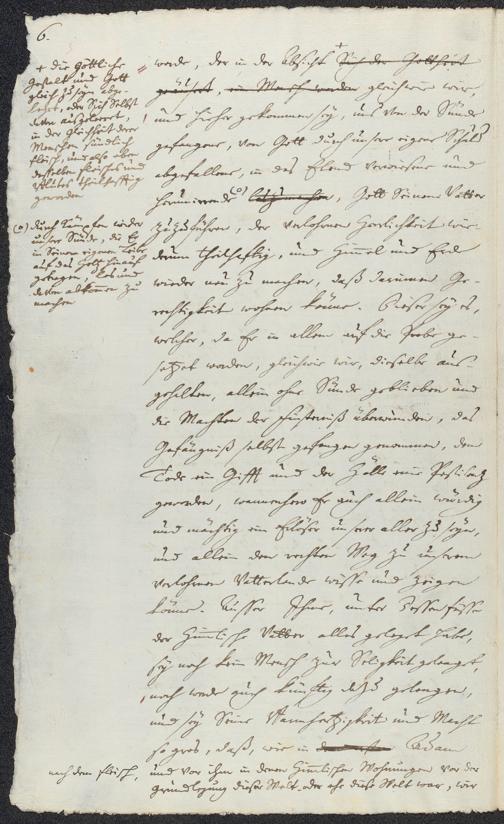 6.
+ die göttliche
Gestalt und Gott
gleich zu seyn abge-
legt, oder Sich Selbst
deren ausgeleeret,
in der Gleichheit derer
Menschen sündlich
Fleisch, und also eben
desselben Fleisches und
Blutes theilhafftig
geworden
(o) durch Kämpfen wieder
unsere Sünde, die Er
in Seinem eigenen Leibe
auf das Holtz hinauf
getragen, Leiden und
deren abkommen zu
machen
werde, der in der Absicht + Sich der Gottheit
geäusert, ein Mensch worden gleichwie wir,
und hieher gekommen sey, uns von der Sünde
gefangene, von Gott durch unsere eigene Schuld
abgefallene, in das Elend verwiesene und
herumirrende (o) Gott Seinem Vatter
zuzuführen, der verlohrnen Herrlichkeit wie-
derum theilhafftig, und Himmel und Erd
wieder neu zu machen, daß darinnen Ge-
rechtigkeit wohnen könne. Dieser sey es,
welcher, da Er in allem auf die Probe ge-
setzet worden, gleichwie wir, dieselbe aus-
gehalten, allein ohne Sünde geblieben und
die Machten der Finsterniß überwunden, das
Gefängniß selbst gefangen genommen, dem
Tode ein Gifft und der Hölle eine Pestilenz
geworden, wannenhero Er auch allein würdig
und mächtig ein Erlöser unserer aller zu seyn,
und allein den rechten Weg zu unserem
verlohrnen Vatterlande wisse und zeigen
könne. Ausser Ihme, unter dessen Füsse
der Himmlische Vatter alles gelegt habe,
sey noch kein Mensch zur Seligkeit gelangt,
noch werde auch künftig dazu gelangen,
und sey Seine Barmhertzigkeit und Macht
so gros, daß, wie in Adam
nach dem Fleisch, und vor ihm in denen Himmlischen Wohnungen vor der
Grundlegung dieser Welt, oder ehe diese Welt war, wir